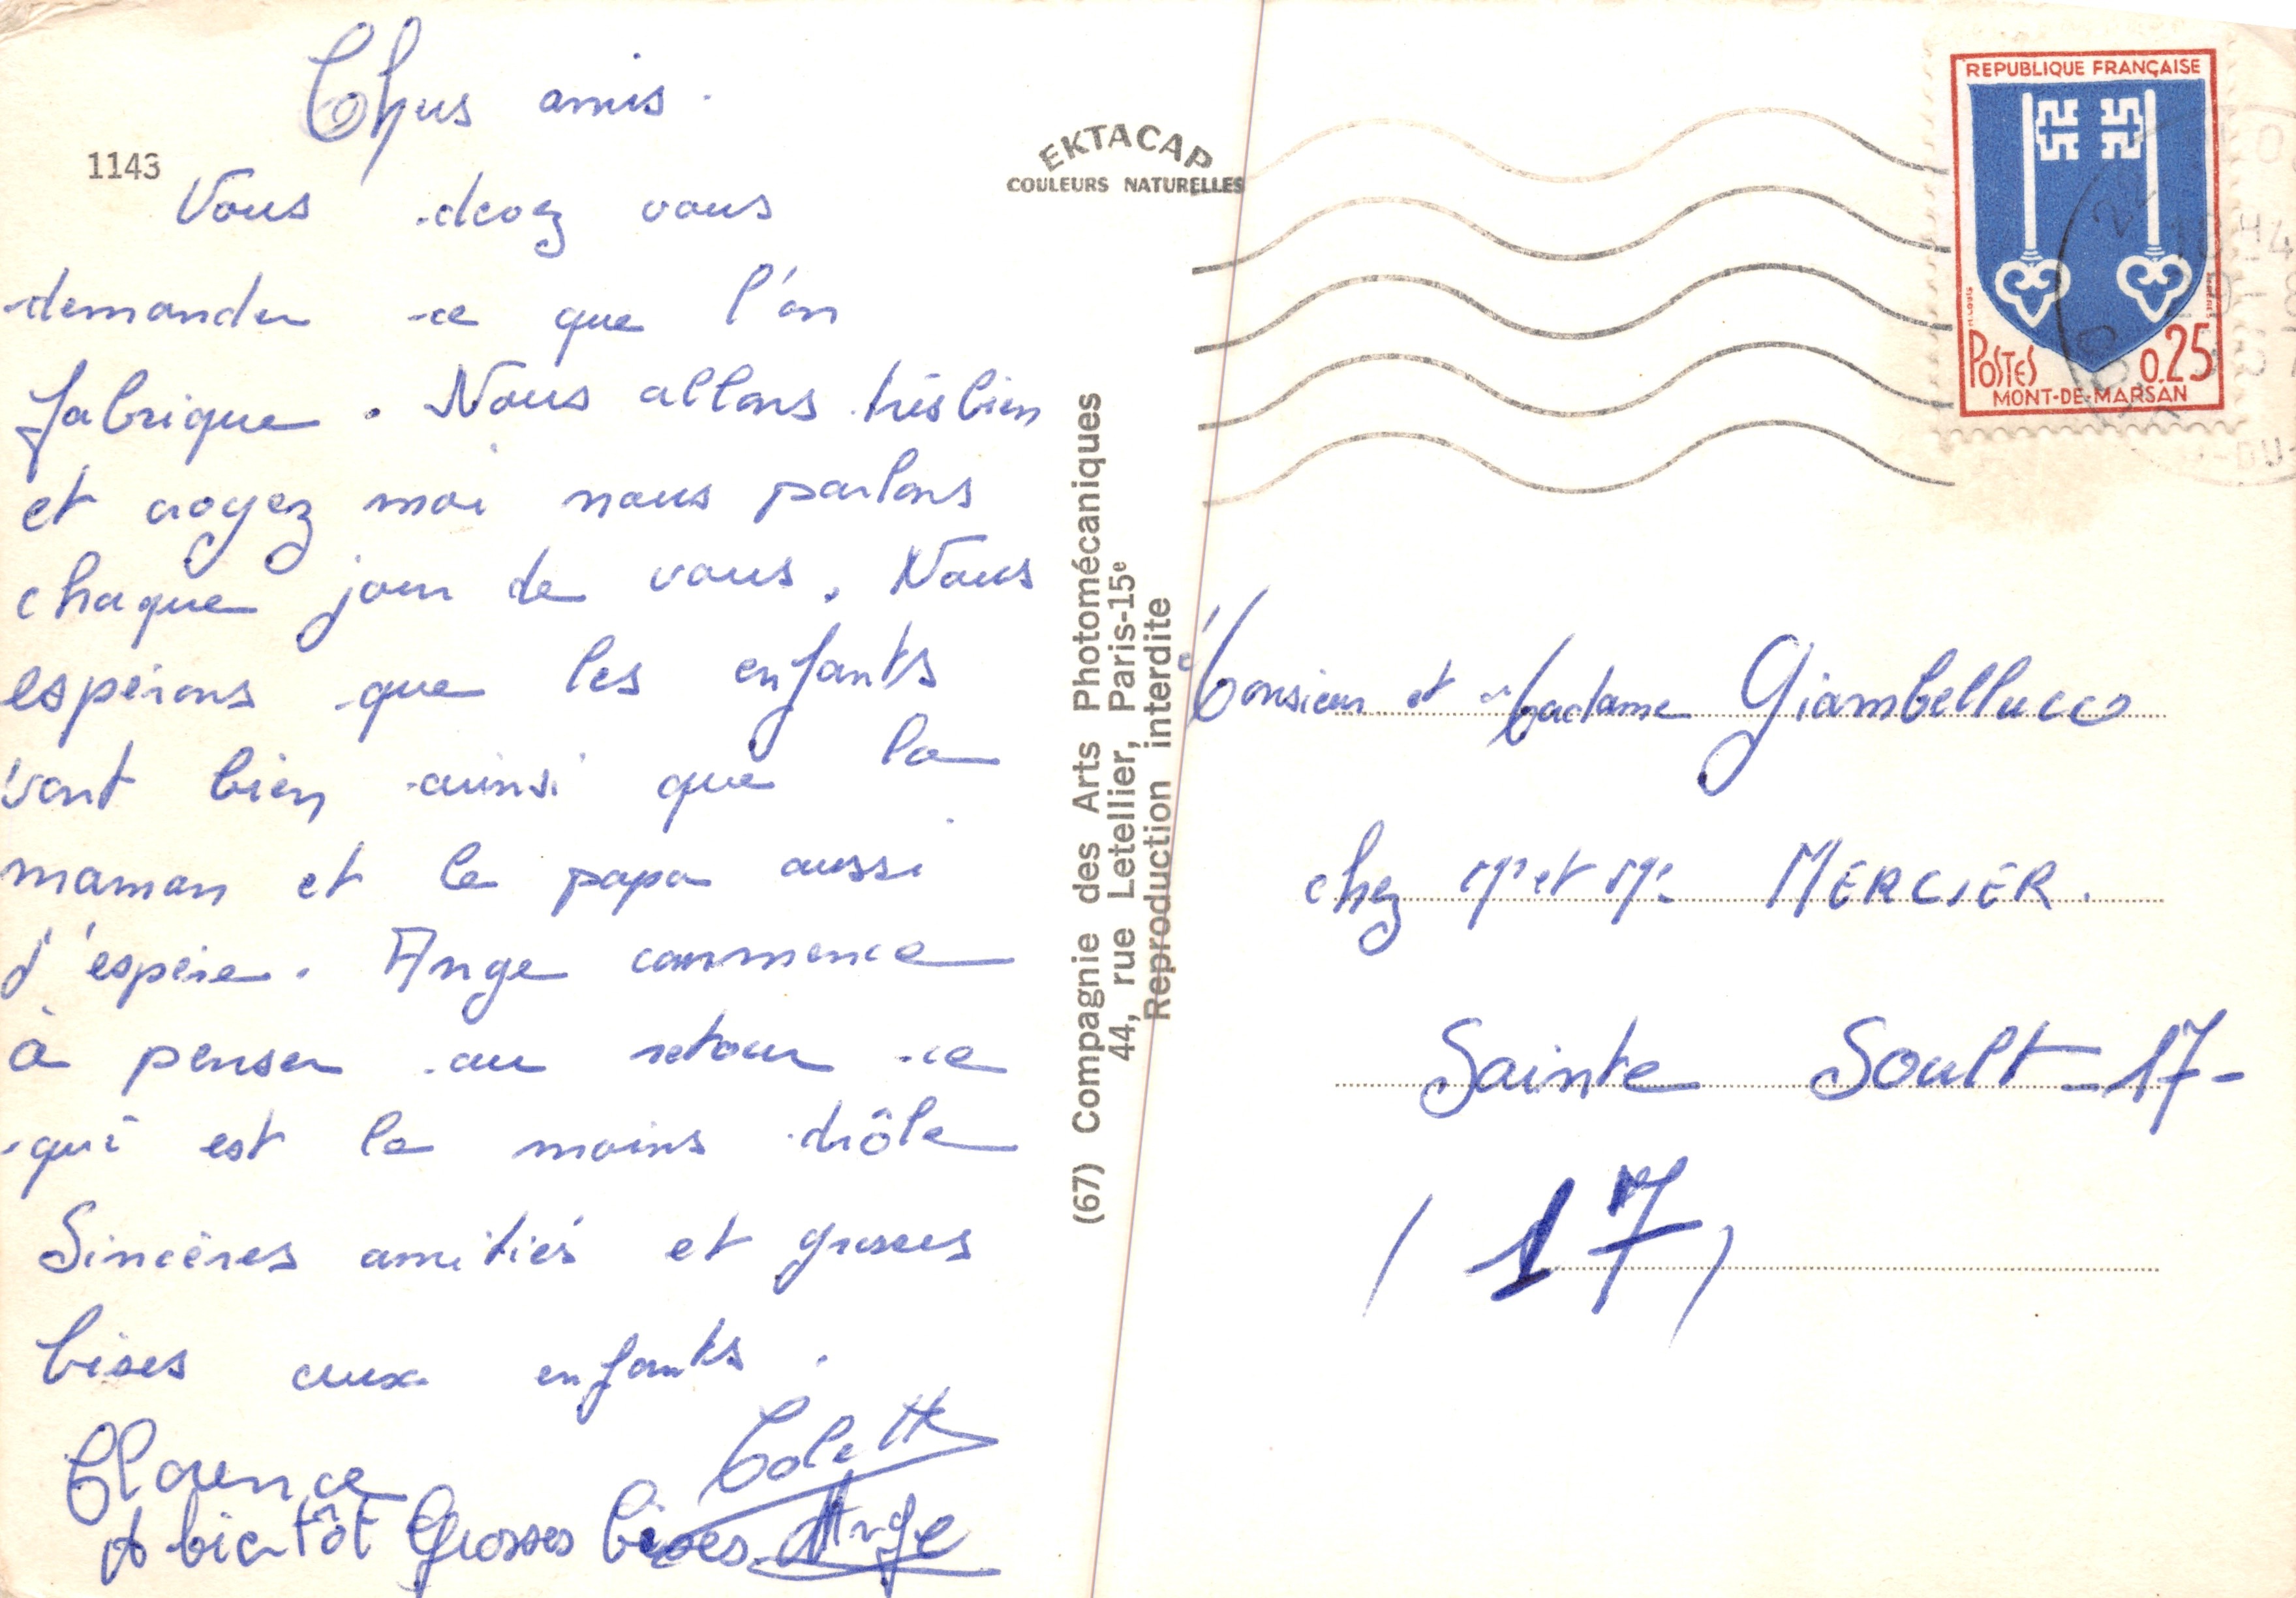 Chers amis.
1143
Vous devez vous
demander ce que l'on
fabrique. Nous allons très bien
et croyez moi nous parlons
chaque jour de vous. Nous
espérons que les enfants
vont bien ainsi que la
maman et le papa aussi
j'espère. Ange commence
à penser au retour ce
qui est le moins drôle
Sincères amitiés et grosses
bises aux enfants.
Colette
Florence
A bientôt Grosses bises Ange
EKTACAP
COULEURS NATURELLES
(67) Compagnie des Arts Photomécaniques
44, rue Letellier, Paris-15e
Reproduction interdite
REPUBLIQUE FRANÇAISE
POSTES 0.25
MONT-DE-MARSAN
Monsieur et Madame Giambellucco
chez Mr et Me MERCIER.
Sainte Soult -17-
(17)